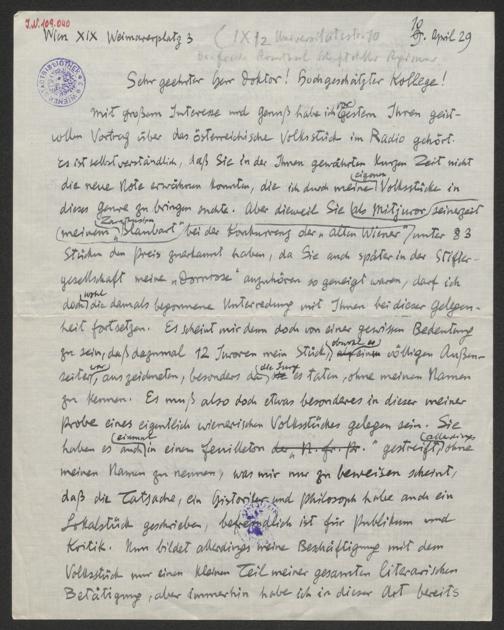 I.N. 109.040
Wien XIX Weimarerplatz 3 (IX/2 Universitätsstr. 10
10. April 29
Sehr geehrter Herr Doktor! Hochgeschätzter Kollege!
Mit großem Interesse und Genuß habe ich gestern Ihren geist-
vollen Vortrag über das österreichische Volksstück im Radio gehört.
Es ist selbstverständlich, daß Sie in der Ihnen gewährten kurzen Zeit nicht
die neue Note erwähnen konnten, die ich durch meine eigenen Volksstücke in
dieses Genre zu bringen suchte. Aber dieweil Sie als Mitjuror seinerzeit
meinem "Blaubart" bei der Konkurrenz der "alten Wiener" unter 83
Stücken den Preis zuerkannt haben, da Sie auch später in der Stifter-
gesellschaft meine "Dornrose" anzuhören so geneigt waren, darf ich
doch wohl die damals begonnene Unterredung mit Ihnen bei dieser Gelegen-
heit fortsetzen. Es scheint mir denn doch von einer gewissen Bedeutung
zu sein, daß dazumal 12 Juroren mein Stück, obwohl es völligen Außen-
seiter, auszeichneten, besonders da die Jury es taten, ohne meinen Namen
zu kennen. Es muß also doch etwas besonderes in dieser meiner
Probe eines eigentlich wienerischen Volksstückes gelegen sein. Sie
haben es auch einmal in einem Feuilleton der "N. fr. Pr." gestreift, allerdings ohne
meinen Namen zu nennen, was mir nur zu beweisen scheint,
daß die Tatsache, ein Historiker und Philosoph habe auch ein
Lokalstück geschrieben, befremdlich ist für Publikum und
Kritik. Nun bildet allerdings meine Beschäftigung mit dem
Volksstück nur einen kleinen Teil meiner gesamten literarischen
Betätigung, aber immerhin habe ich in dieser Art bereits